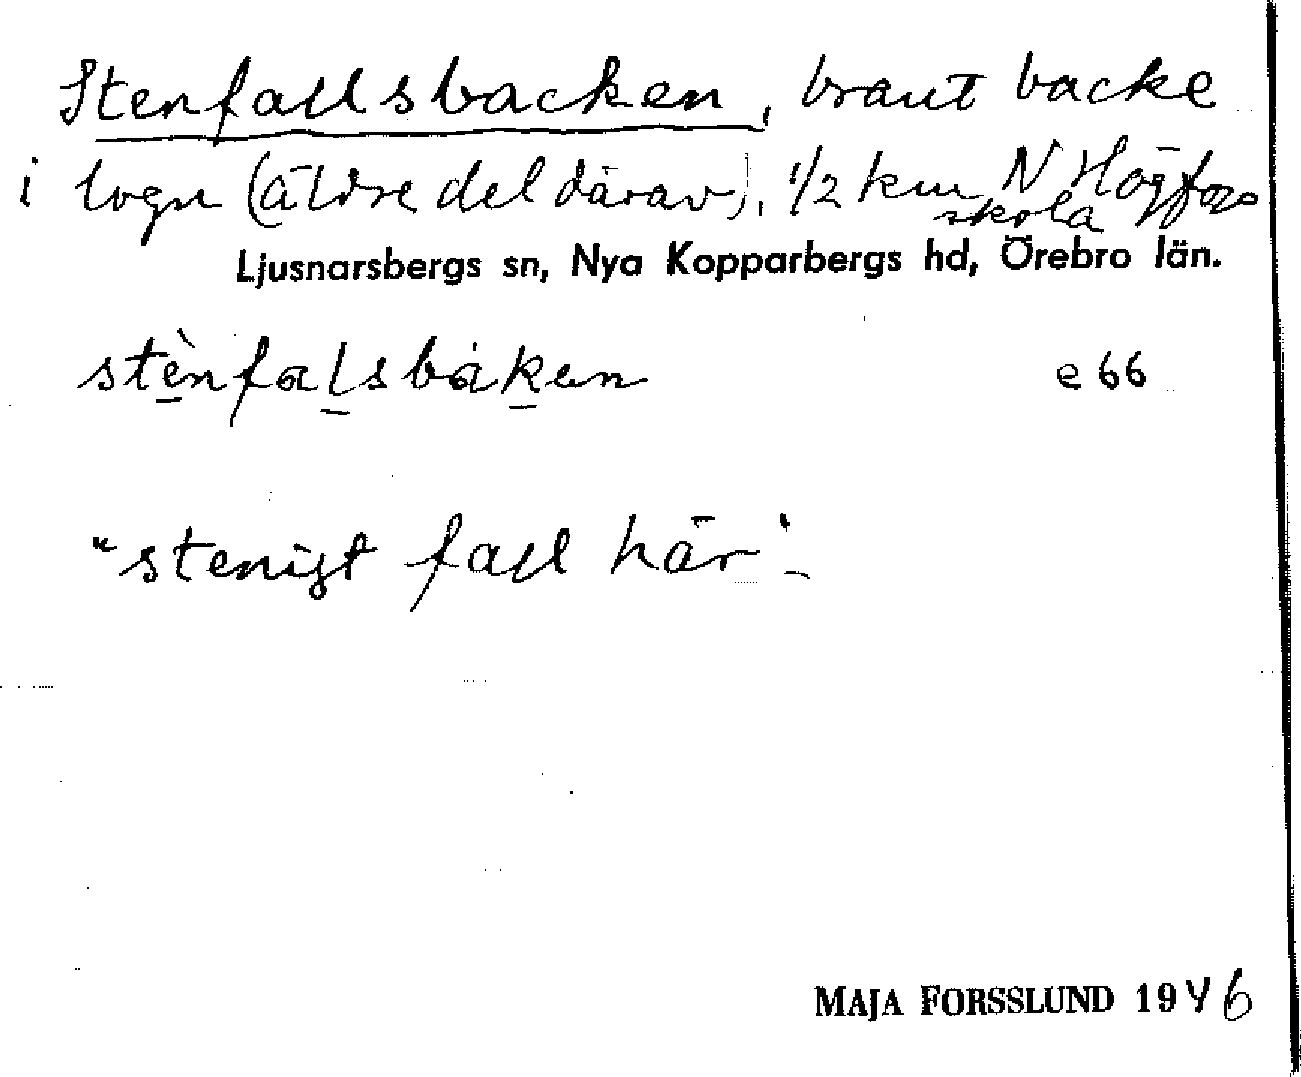 Stenfallsbacken, brant backe
i lvgn (äldre del därav), 1/2 km N Högfors
skola
Ljusnarsbergs sn, Nya Kopparbergs hd, Örebro län.
stènfalsbàken e 66
"stenigt fall här".
MAJA FORSSLUND 1946